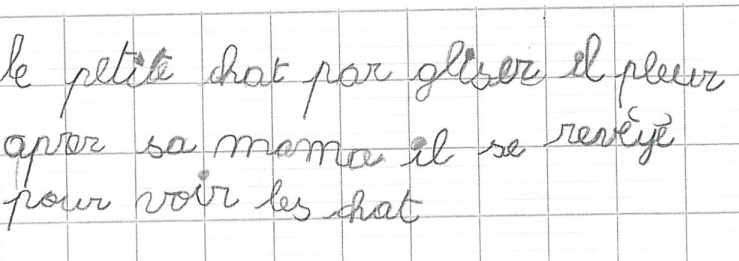 le petite chat par gliser il pleur
aprer sa mama il se revéyé
pour voir les chat